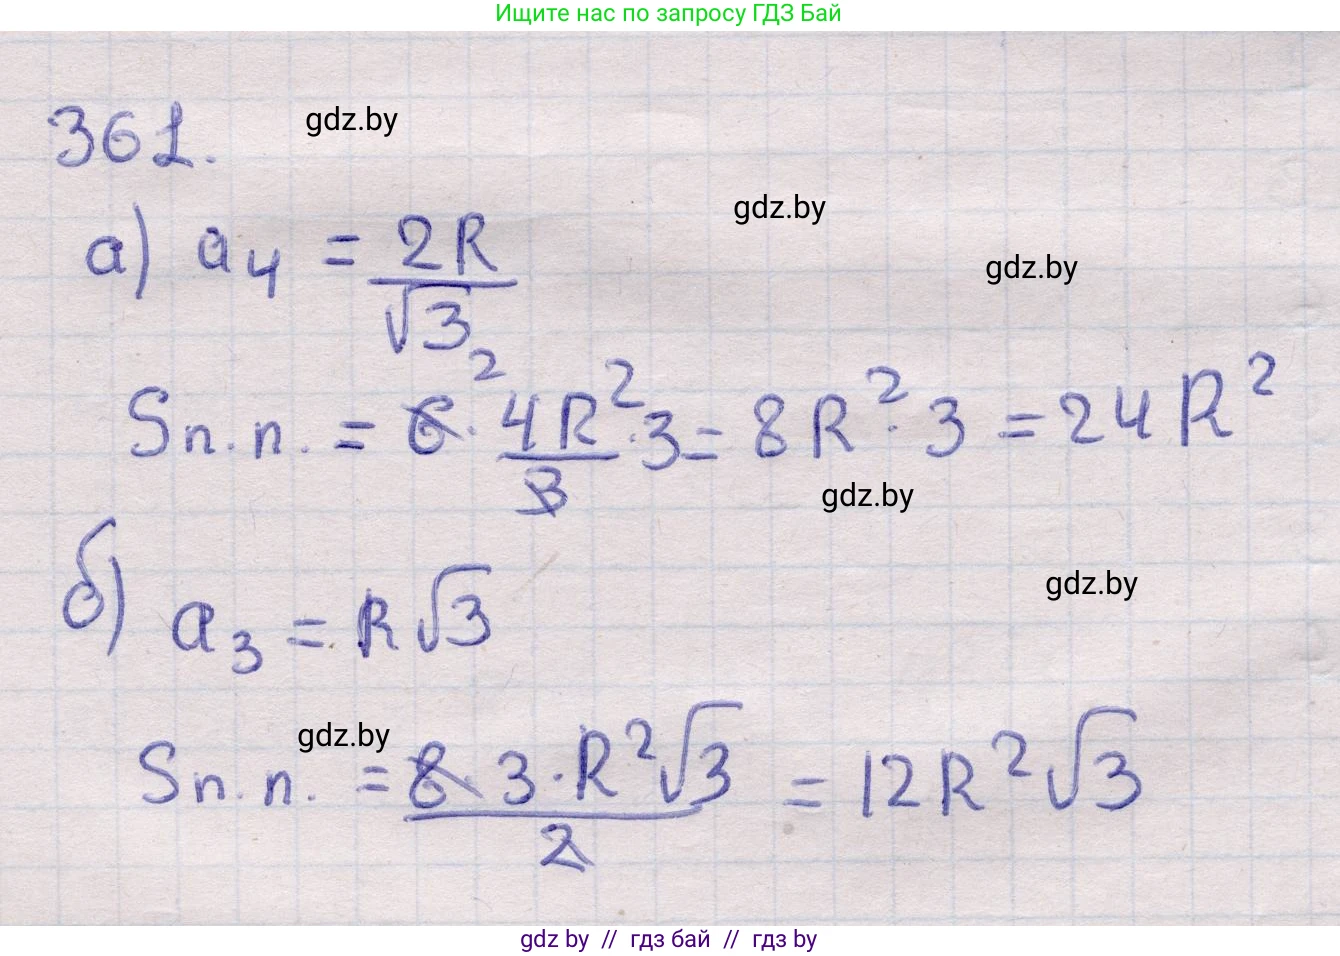 Ищите нас по запросу ГДЗ Бай
361. gdz.by
gdz.by
а) a₄ = 2R/√3
gdz.by
Sп.п. = 6 ² · 4R²/3 · 3 = 8R² · 3 = 24R²
gdz.by
б) a₃ = R√3
gdz.by
gdz.by
Sп.п. = 8 · 3 · R²√3/2 = 12R²√3
gdz by // гдз бай // гдз by